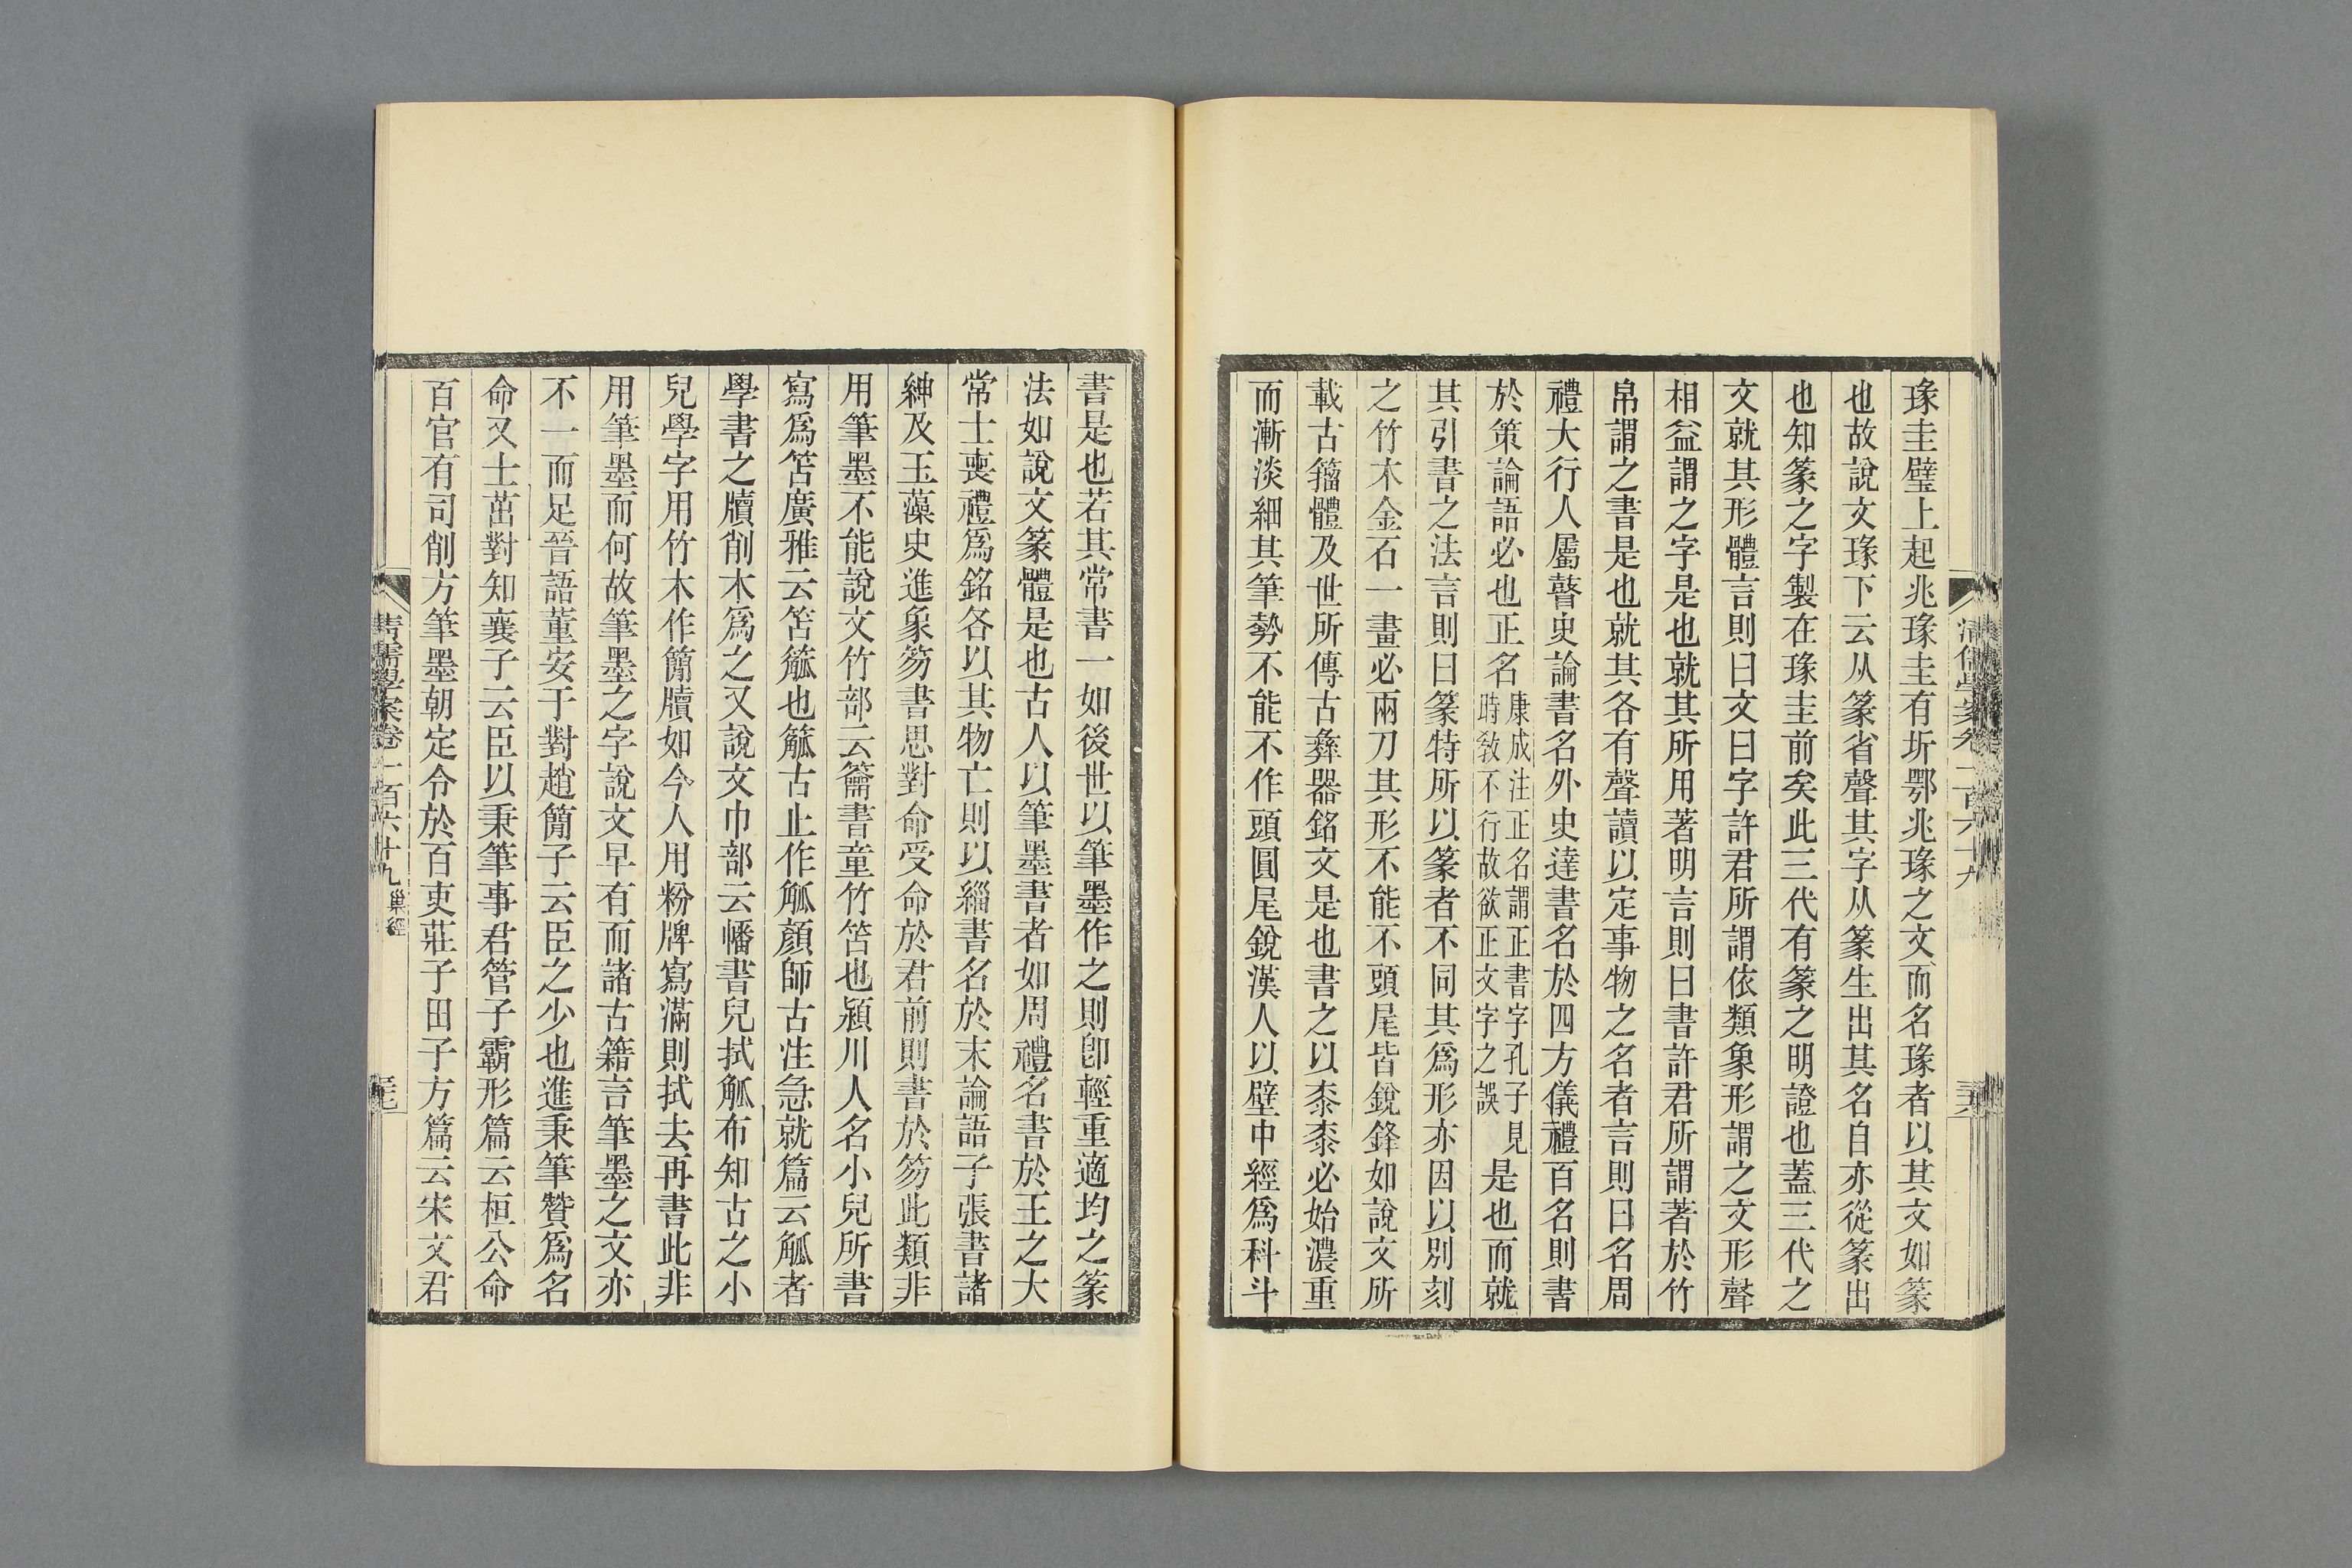 瑑圭璧上起兆瑑圭有圻鄂兆瑑之文而名瑑者以其文如篆
也故說文瑑下云从篆省聲其字从篆生出其名自亦從篆出
也知篆之字製在瑑圭前矣此三代有篆之明證也蓋三代之
文就其形體言則曰文曰字許君所謂依類象形謂之文形聲
相益謂之字是也就其所用著明言則曰書許君所謂著於竹
帛謂之書是也就其各有聲讀以定事物之名者言則曰名周
禮大行人屬瞽史論書名外史達書名於四方儀禮百名則書
於策論語必也正名康成注正名謂正書字孔子見時敎不行故欲正文字之誤是也而就
其引書之法言則曰篆特所以篆者不同其爲形亦因以別刻
之竹木金石一畫必兩刀其形不能不頭尾皆銳鋒如說文所
載古籀體及世所傳古彝器銘文是也書之以桼桼必始濃重
而漸淡細其筆勢不能不作頭圓尾銳漢人以壁中經爲科斗
書是也若其常書一如後世以筆墨作之則卽輕重適均之篆
法如說文篆體是也古人以筆墨書者如周禮名書於王之大
常士喪禮爲銘各以其物亡則以緇書名於末論語子張書諸
紳及玉藻史進象笏書思對命受命於君前則書於笏此類非
用筆墨不能說文竹部云籥書童竹笘也潁川人名小兒所書
寫爲笘廣雅云笘籨也觚古止作觚顏師古注急就篇云觚者
學書之牘削木爲之又說文巾部云幡書兒拭觚布知古之小
兒學字用竹木作簡牘如今人用粉牌寫滿則拭去再書此非
用筆墨而何故筆墨之字說文早有而諸古籍言筆墨之文亦
不一而足晉語董安于對趙簡子云臣之少也進秉筆贊爲名
命又士茁對知襄子云臣以秉筆事君管子霸形篇云桓公命
百官有司削方筆墨朝定令於百吏莊子田子方篇云宋文君
清儒學案卷一百六十九 巢經